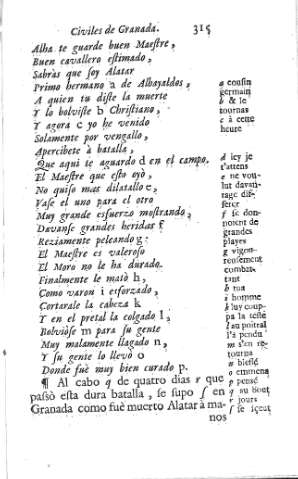 Civiles de Granada. 315
Alha te guarde buen Maeſtre,
Buen cavallero eſtimado,
Sabràs que ſoy Alatar
Primo hermano a de Albayaldos,
A quien tu diſte la muerte
Y lo bolviſte b Chriſtiano,
Y agora c yo he venido
Solamente por vengallo,
Apercibete à batalla,
Que aqui te aguardo d en el campo.
El Maeſtre que eſto oyò,
No quiſo mas dilatallo e,
Vaſe el uno para el otro
Muy grande esfuerzo moſtrando,
Davanſe grandes heridas f
Reziamente peleando g:
El Maeſtre es valeroſo
El Moro no le ha durado.
Finalmente le matò h,
Como varon i esforzado,
Cortarale la cabeza k
Y en el pretal la colgado l,
Bolviòſe m para ſu gente
Muy malamente llagado n,
Y ſu gente lo llevò o
Donde fuè muy bien curado p.
¶ Al cabo q de quatro dias r que
paſsò eſta dura batalla, ſe ſupo ſ en
Granada como fuè muerto Alatar à ma-
nos
a couſin
germain
b & le
tournas
c à cette
heure
d icy je
t'attens
e ne vou-
lut davan-
tage dif-
ferer
f ſe don-
noient de
grandes
playes
g vigou-
reuſement
combat-
tant
h tua
i homme
k luy coup-
pa la teſte
l au poitral
l'à pendu
m s'en re-
tourna
n bleſſé
o emmena
p penſé
q au bout
r jours
ſ ſe ſçeut